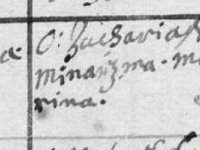 O: Zacharias
a. Minarz ma. Ma
rina.